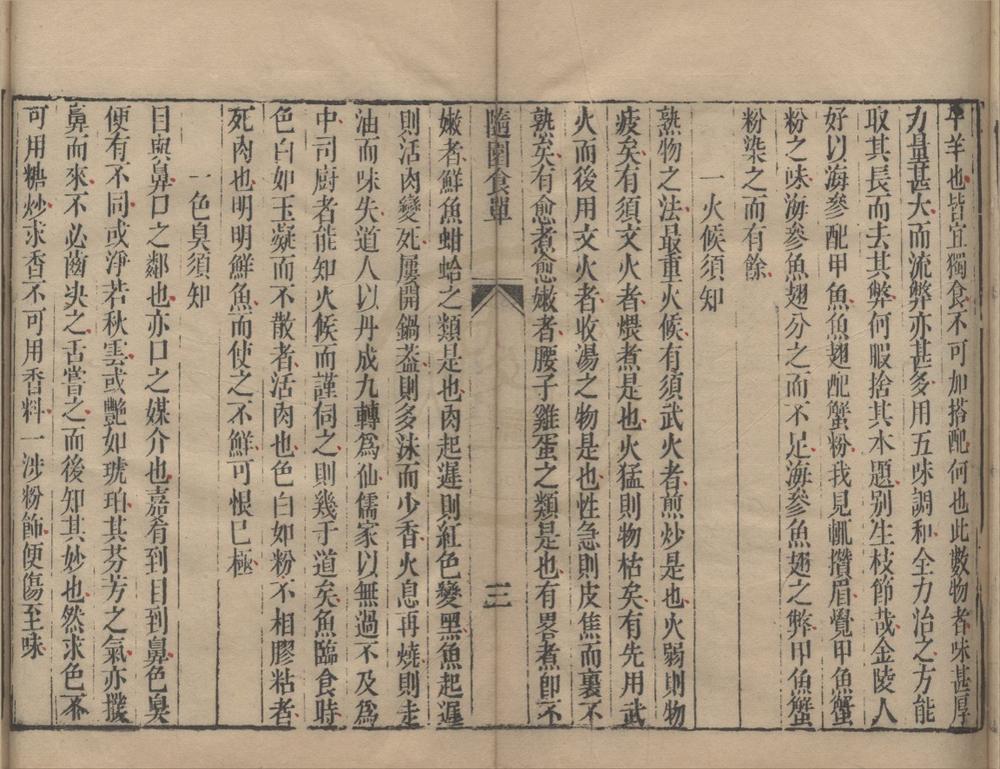 羊也皆宜獨食不可加搭配何也此數物者味甚厚
力量甚大而流弊亦甚多用五味調和全力治之方能
取其長而去其弊何暇捨其本題別生枝節哉金陵人
好以海參配甲魚魚翅配蟹粉我見輒攢眉覺甲魚蟹
粉之味海參魚翅分之而不足海參魚翅之弊甲魚蟹
粉染之而有餘
一火候須知
熟物之法最重火候有須武火者煎炒是也火弱則物
疲矣有須文火者煨煮是也火猛則物枯矣有先用武
火而後用文火者收湯之物是也性急則皮焦而裏不
熟矣有愈煮愈嫩者腰子雞蛋之類是也有畧煮即不
隨園食單
三
嫩者鮮魚蚶蛤之類是也肉起遲則紅色變黑魚起遲
則活肉變死屢開鍋蓋則多沫而少香火息再燒則走
油而味失道人以丹成九轉爲仙儒家以無過不及爲
中司廚者能知火候而謹伺之則幾于道矣魚臨食時
色白如玉凝而不散者活肉也色白如粉不相膠粘者
死肉也明明鮮魚而使之不鮮可恨已極
一色臭須知
目與鼻口之鄰也亦口之媒介也嘉肴到目到鼻色臭
便有不同或淨若秋雲或艷如琥珀其芬芳之氣亦撲
鼻而來不必齒决之舌嘗之而後知其妙也然求色不
可用糖炒求香不可用香料一涉粉飾便傷至味